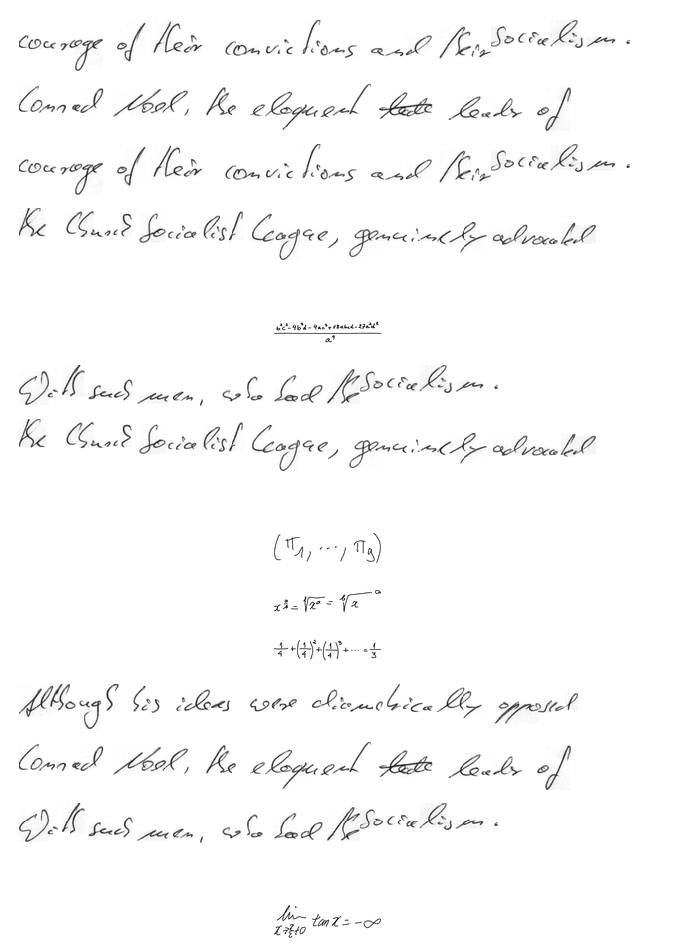 courage of their convictions and their Socialism.
Conrad Noel, the eloquent leader of
courage of their convictions and their Socialism.
the Church Socialist League, genuinely advocated
\frac{b^2c^2-4b^3d-4ac^3+18abcd-27a^2d^2}{a^4}
With such men, who had the Socialism.
the Church Socialist League, genuinely advocated
(π_1, ..., π_g)
x^{\frac{a}{b}} = \sqrt[b]{x^a} = \sqrt[b]{x}^a
\frac{1}{4}+(\frac{1}{4})^2+(\frac{1}{4})^3+⋯=\frac{1}{3}
Although his ideas were diametrically opposed
Conrad Noel, the eloquent leader of
With such men, who had the Socialism.
\lim_{x→\frac{π}{2}+0} tan x = -∞